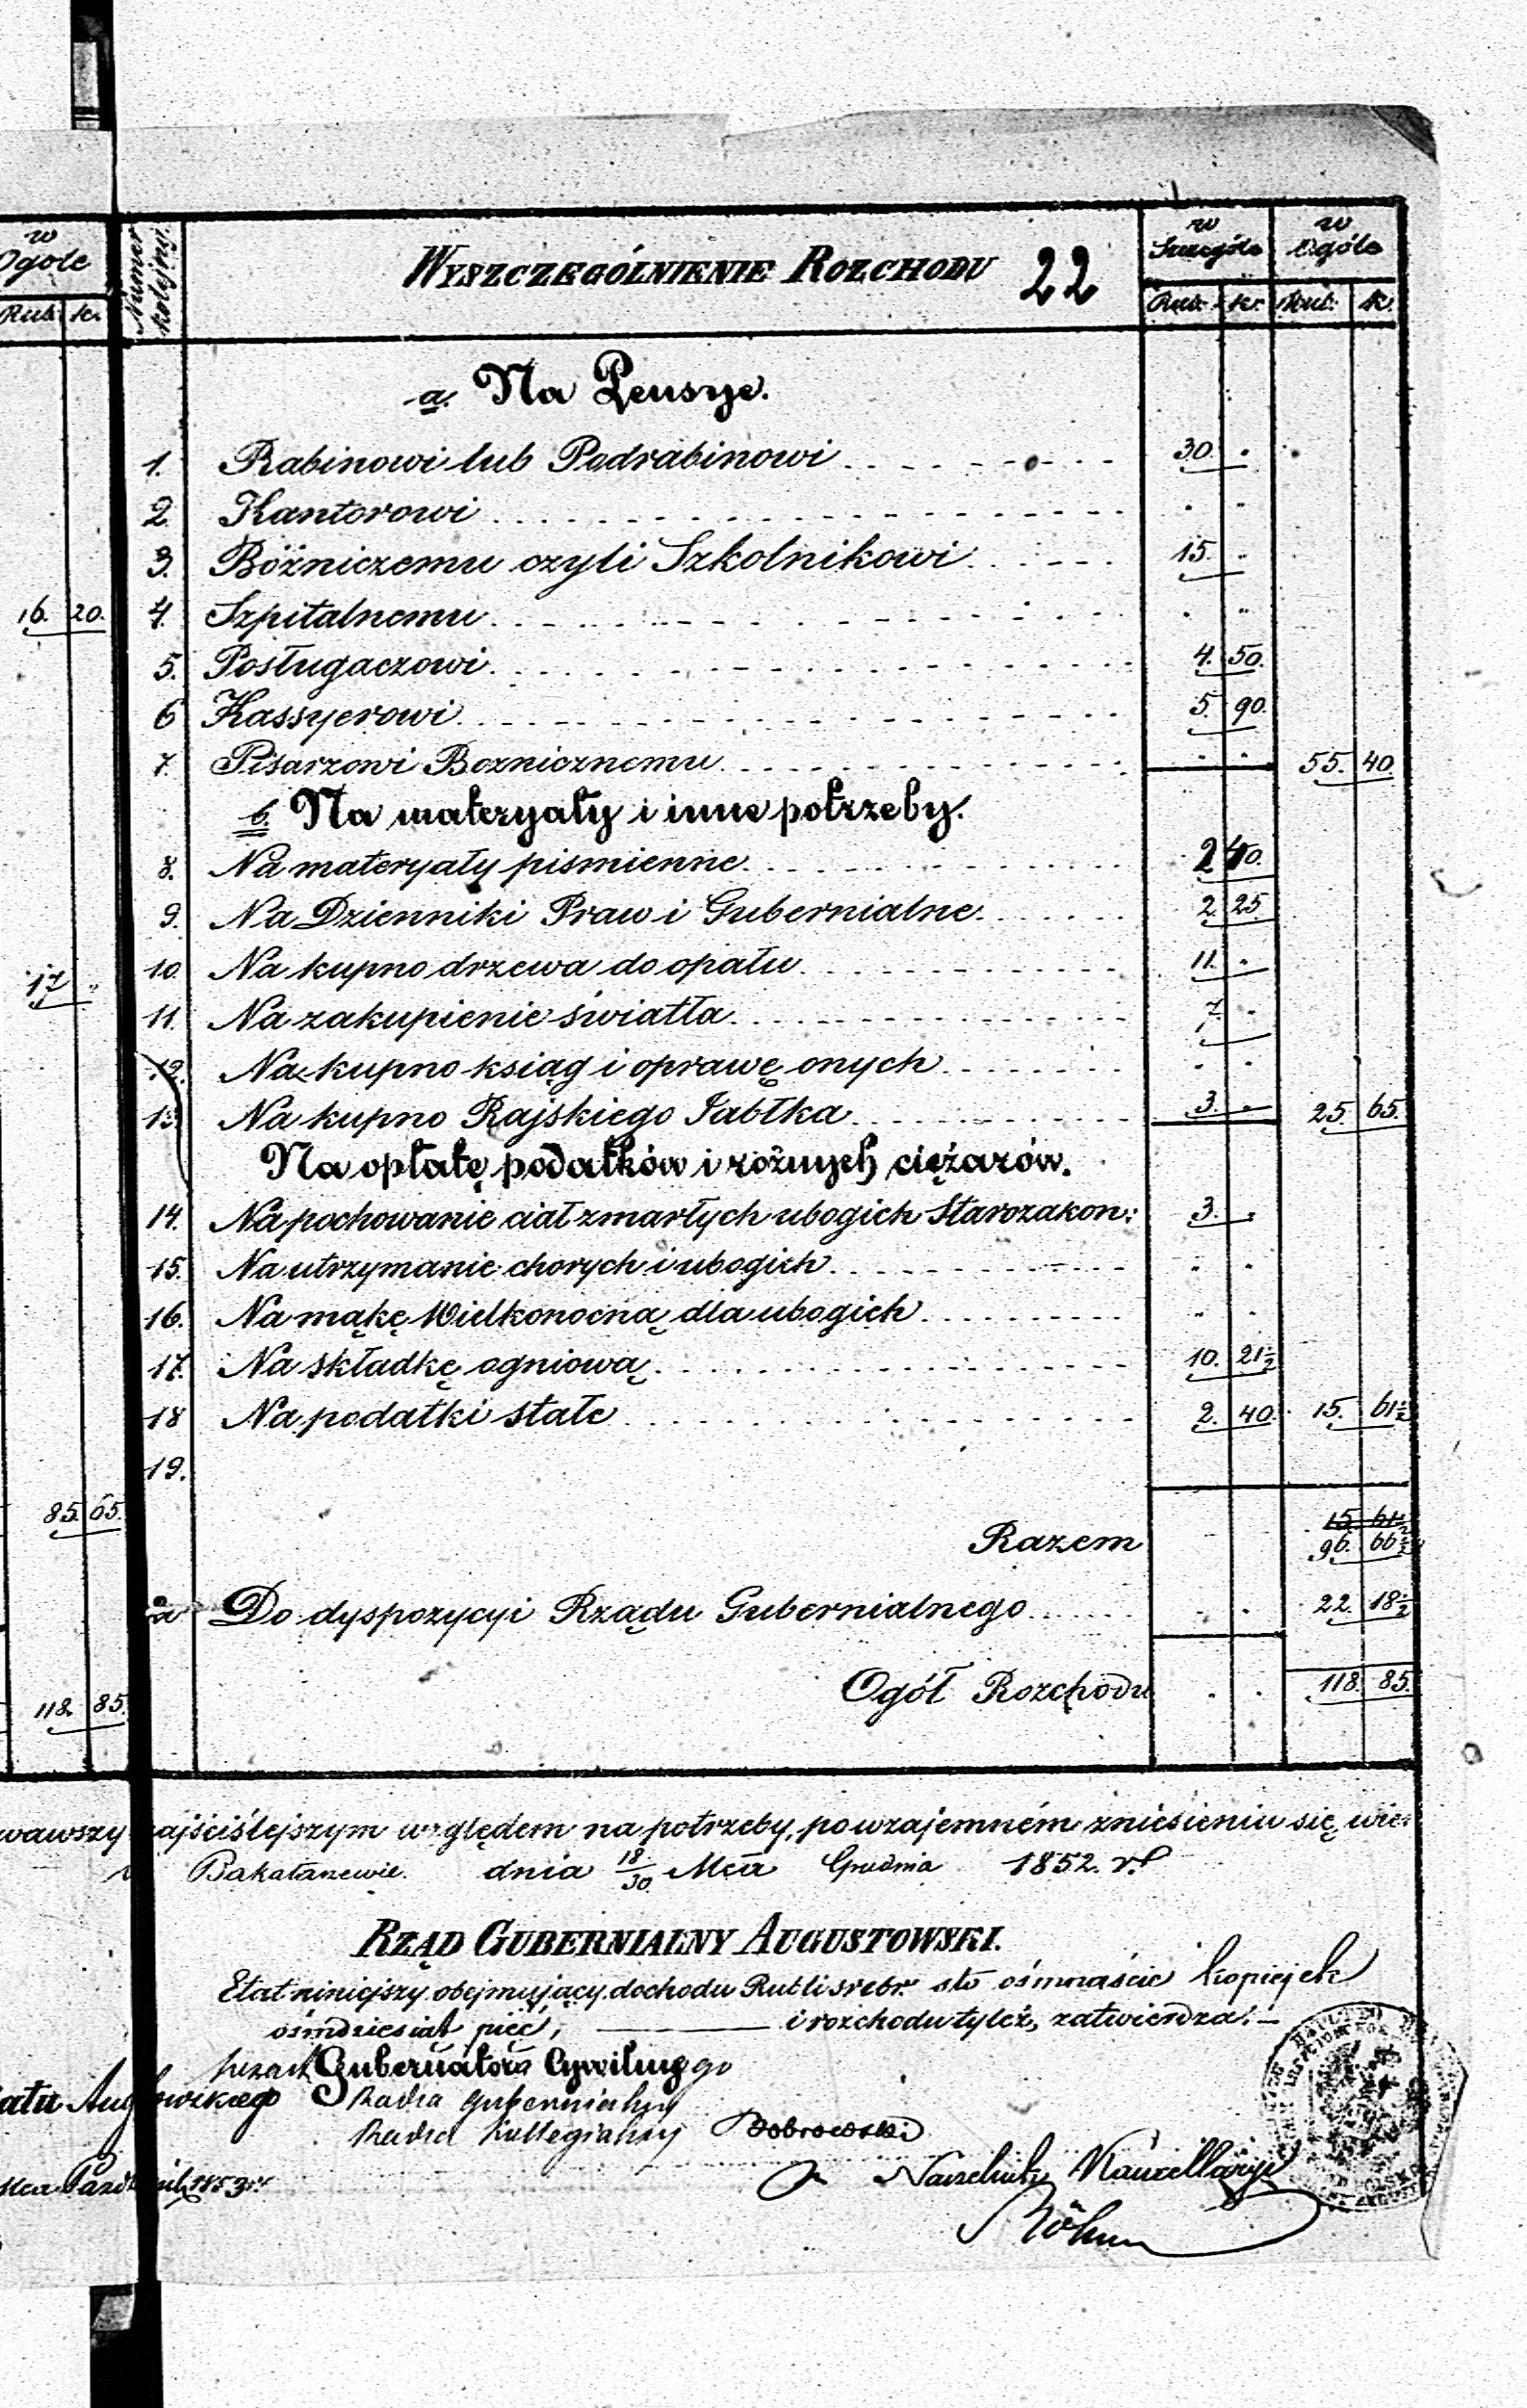 w Ogole
Rub. k.
16. 20.
17 "
85. 65.
118. 85.
Numer kolejny.
WYSZCZEGÓLNIENIE ROZCHODU 22
w Szczególe
w Ogóle
Rub. k. Rub. k.
a. Na Pensye.
1. Rabinowi lub Podrabinowi 30. "
2. Kantorowi " "
3. Bóźniczemu czyli Szkolnikowi 15. "
4. Szpitalnemu " "
5. Posługaczowi 4. 50.
6 Kassyerowi 5. 90.
7. Pisarzowi Boznicznemu " " 55. 40.
b. Na materyały i inne potrzeby.
8. Na materyały piśmienne 2 40.
9. Na Dzienniki Praw i Gubernialne 2. 25
10. Na kupno drzewa do opału 11. "
11. Na zakupienie światła 7. "
12. Na kupno ksiąg i oprawę onych " "
13. Na kupno Rajskiego Jabłka 3. " 25. 65.
Na opłatę podatków i rożnych ciężarów.
14. Na pochowanie ciał zmarłych ubogich Starozakon: 3. "
15. Na utrzymanie chorych i ubogich " "
16. Na mąkę Wielkonocną dla ubogich " "
17. Na składkę ogniową 10. 21½
18 Na podatki stałe 2. 40. 15. 61½
19.
15. 61½
Razem 96. 66½
a Do dyspozycyi Rządu Gubernialnego " " 22. 18½
Ogół Rozchodu " " 118. 85.
wawszy najściślejszym względem na potrzeby, po wzajemném zniesieniu się, wie
Bakałarzewie. dnia 18/30 Mca Grudnia 1852. r.
RZĄD GUBERNIALNY AUGUSTOWSKI.
Etat niniejszy obejmujący dochodu Rubli srebr. sto ośmnaście kopiejek
ośmdziesiąt pięć, i rozchodu tyleż, zatwierdza.
Gubernatora Cywilnego
Radca Gubernialny
Radca Kollegialny Dobrowolski
Naczelnik Kancellaryi
Böhm